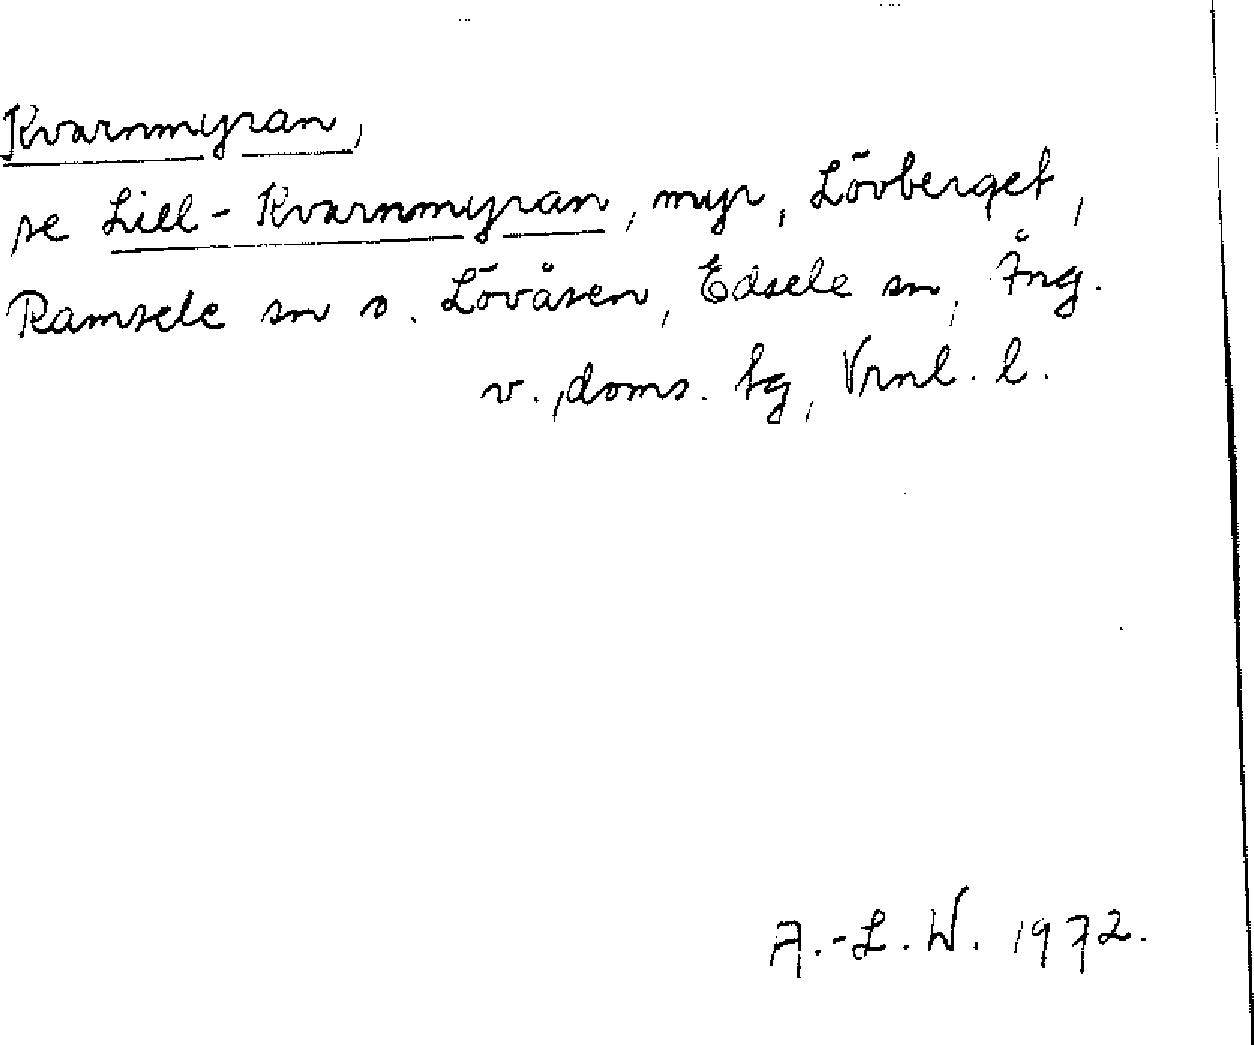 Kvarnmyran,
se Lill-Kvarnmyran, myr, Lövberget,
Ramsele sn o. Lövåsen, Edsele sn, Ång.
v. doms. tg, Vrnl. l.
A.-L. W. 1972.